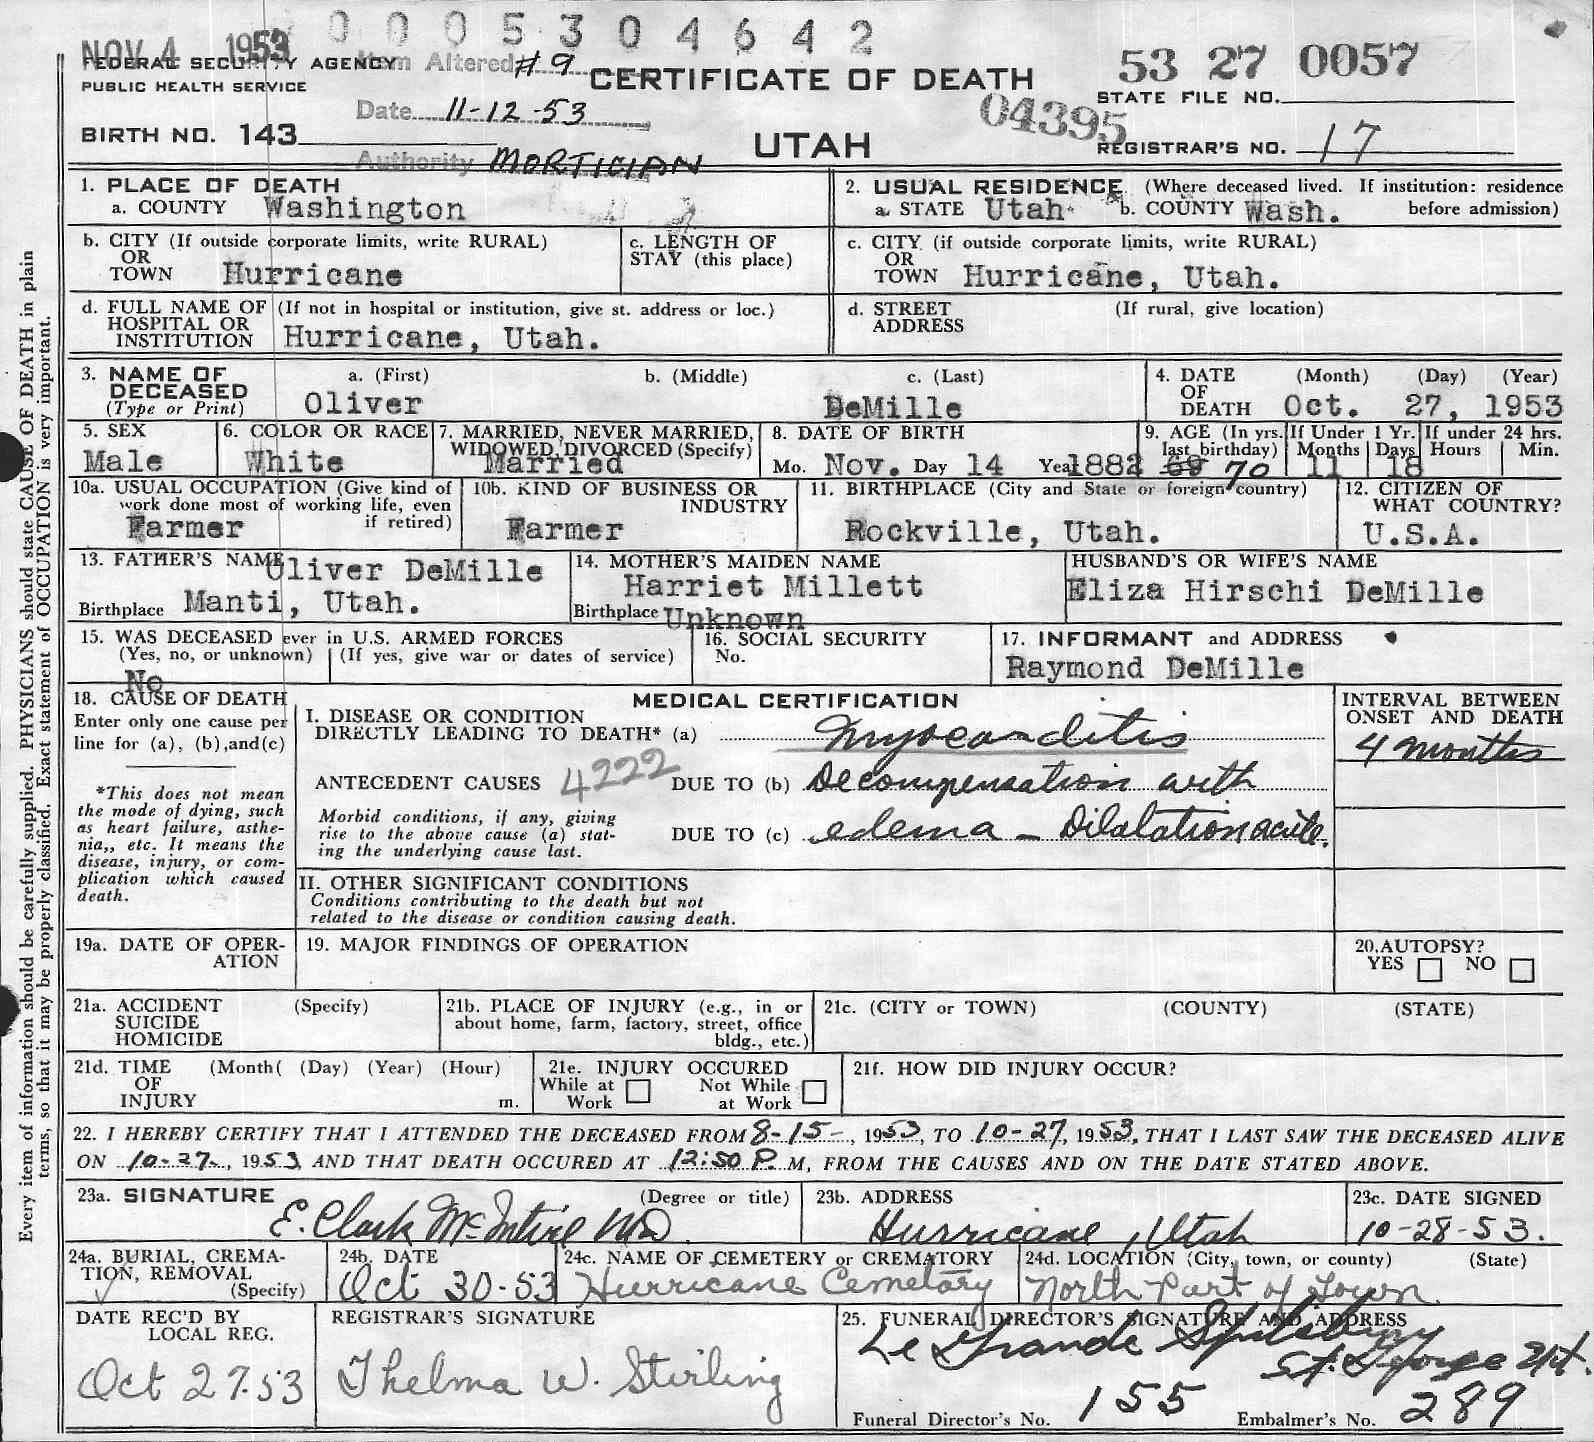 0 0 0 5 3 0 4 6 4 2
NOV 4 1953
FEDERAL SECURITY AGENCY
PUBLIC HEALTH SERVICE
Item Altered #9
Date 11-12-53
Authority MORTICIAN
BIRTH NO. 143
CERTIFICATE OF DEATH
UTAH
53 27 0057
STATE FILE NO.
04395
REGISTRAR'S NO. 17
1. PLACE OF DEATH
a. COUNTY Washington
2. USUAL RESIDENCE (Where deceased lived. If institution: residence before admission)
a. STATE Utah b. COUNTY Wash.
b. CITY (If outside corporate limits, write RURAL)
OR
TOWN Hurricane
c. LENGTH OF
STAY (this place)
c. CITY (if outside corporate limits, write RURAL)
OR
TOWN Hurricane, Utah.
d. FULL NAME OF (If not in hospital or institution, give st. address or loc.)
HOSPITAL OR
INSTITUTION Hurricane, Utah.
d. STREET (If rural, give location)
ADDRESS
3. NAME OF DECEASED
(Type or Print)
a. (First) b. (Middle) c. (Last)
Oliver DeMille
4. DATE OF DEATH (Month) (Day) (Year)
Oct. 27, 1953
5. SEX
Male
6. COLOR OR RACE
White
7. MARRIED, NEVER MARRIED,
WIDOWED, DIVORCED (Specify)
Married
8. DATE OF BIRTH
Mo. Nov. Day 14 Year 1882
9. AGE (In yrs. last birthday)
69 70
If Under 1 Yr.
Months Days
11 18
If under 24 hrs.
Hours Min.
10a. USUAL OCCUPATION (Give kind of
work done most of working life, even
if retired)
Farmer
10b. KIND OF BUSINESS OR
INDUSTRY
Farmer
11. BIRTHPLACE (City and State or foreign country)
Rockville, Utah.
12. CITIZEN OF
WHAT COUNTRY?
U.S.A.
13. FATHER'S NAME Oliver DeMille
Birthplace Manti, Utah.
14. MOTHER'S MAIDEN NAME
Harriet Millett
Birthplace Unknown
HUSBAND'S OR WIFE'S NAME
Eliza Hirschi DeMille
15. WAS DECEASED ever in U.S. ARMED FORCES
(Yes, no, or unknown) (If yes, give war or dates of service)
No
16. SOCIAL SECURITY
No.
17. INFORMANT and ADDRESS
Raymond DeMille
18. CAUSE OF DEATH
Enter only one cause per
line for (a), (b),and(c)
*This does not mean
the mode of dying, such
as heart failure, asthe-
nia,, etc. It means the
disease, injury, or com-
plication which caused
death.
MEDICAL CERTIFICATION
I. DISEASE OR CONDITION
DIRECTLY LEADING TO DEATH* (a) Myocarditis
ANTECEDENT CAUSES 4222 DUE TO (b) Decompensation with
Morbid conditions, if any, giving
rise to the above cause (a) stat-
ing the underlying cause last.
DUE TO (c) edema - Dilatation acute.
INTERVAL BETWEEN
ONSET AND DEATH
4 months
II. OTHER SIGNIFICANT CONDITIONS
Conditions contributing to the death but not
related to the disease or condition causing death.
19a. DATE OF OPER-
ATION
19. MAJOR FINDINGS OF OPERATION
20.AUTOPSY?
YES NO
21a. ACCIDENT (Specify)
SUICIDE
HOMICIDE
21b. PLACE OF INJURY (e.g., in or
about home, farm, factory, street, office
bldg., etc.)
21c. (CITY or TOWN) (COUNTY) (STATE)
21d. TIME (Month( (Day) (Year) (Hour)
OF
INJURY m.
21e. INJURY OCCURED
While at Work Not While at Work
21f. HOW DID INJURY OCCUR?
22. I HEREBY CERTIFY THAT I ATTENDED THE DECEASED FROM 8-15-, 1953, TO 10-27, 1953, THAT I LAST SAW THE DECEASED ALIVE
ON 10-27, 1953, AND THAT DEATH OCCURED AT 12:50 P. M, FROM THE CAUSES AND ON THE DATE STATED ABOVE.
23a. SIGNATURE (Degree or title)
E. Clark McIntire MD.
23b. ADDRESS
Hurricane, Utah
23c. DATE SIGNED
10-28-53.
24a. BURIAL, CREMA-
TION, REMOVAL
(Specify)
24b. DATE
Oct 30-53
24c. NAME OF CEMETERY or CREMATORY
Hurricane Cemetary
24d. LOCATION (City, town, or county) (State)
North Part of Town.
DATE REC'D BY
LOCAL REG.
Oct 27.53
REGISTRAR'S SIGNATURE
Thelma W. Stirling
25. FUNERAL DIRECTOR'S SIGNATURE AND ADDRESS
Le Grande Spilsbury
St. George Ut.
Funeral Director's No. 155 Embalmer's No. 289
Every item of information should be carefully supplied. PHYSICIANS should state CAUSE OF DEATH in plain
terms, so that it may be properly classified. Exact statement of OCCUPATION is very important.